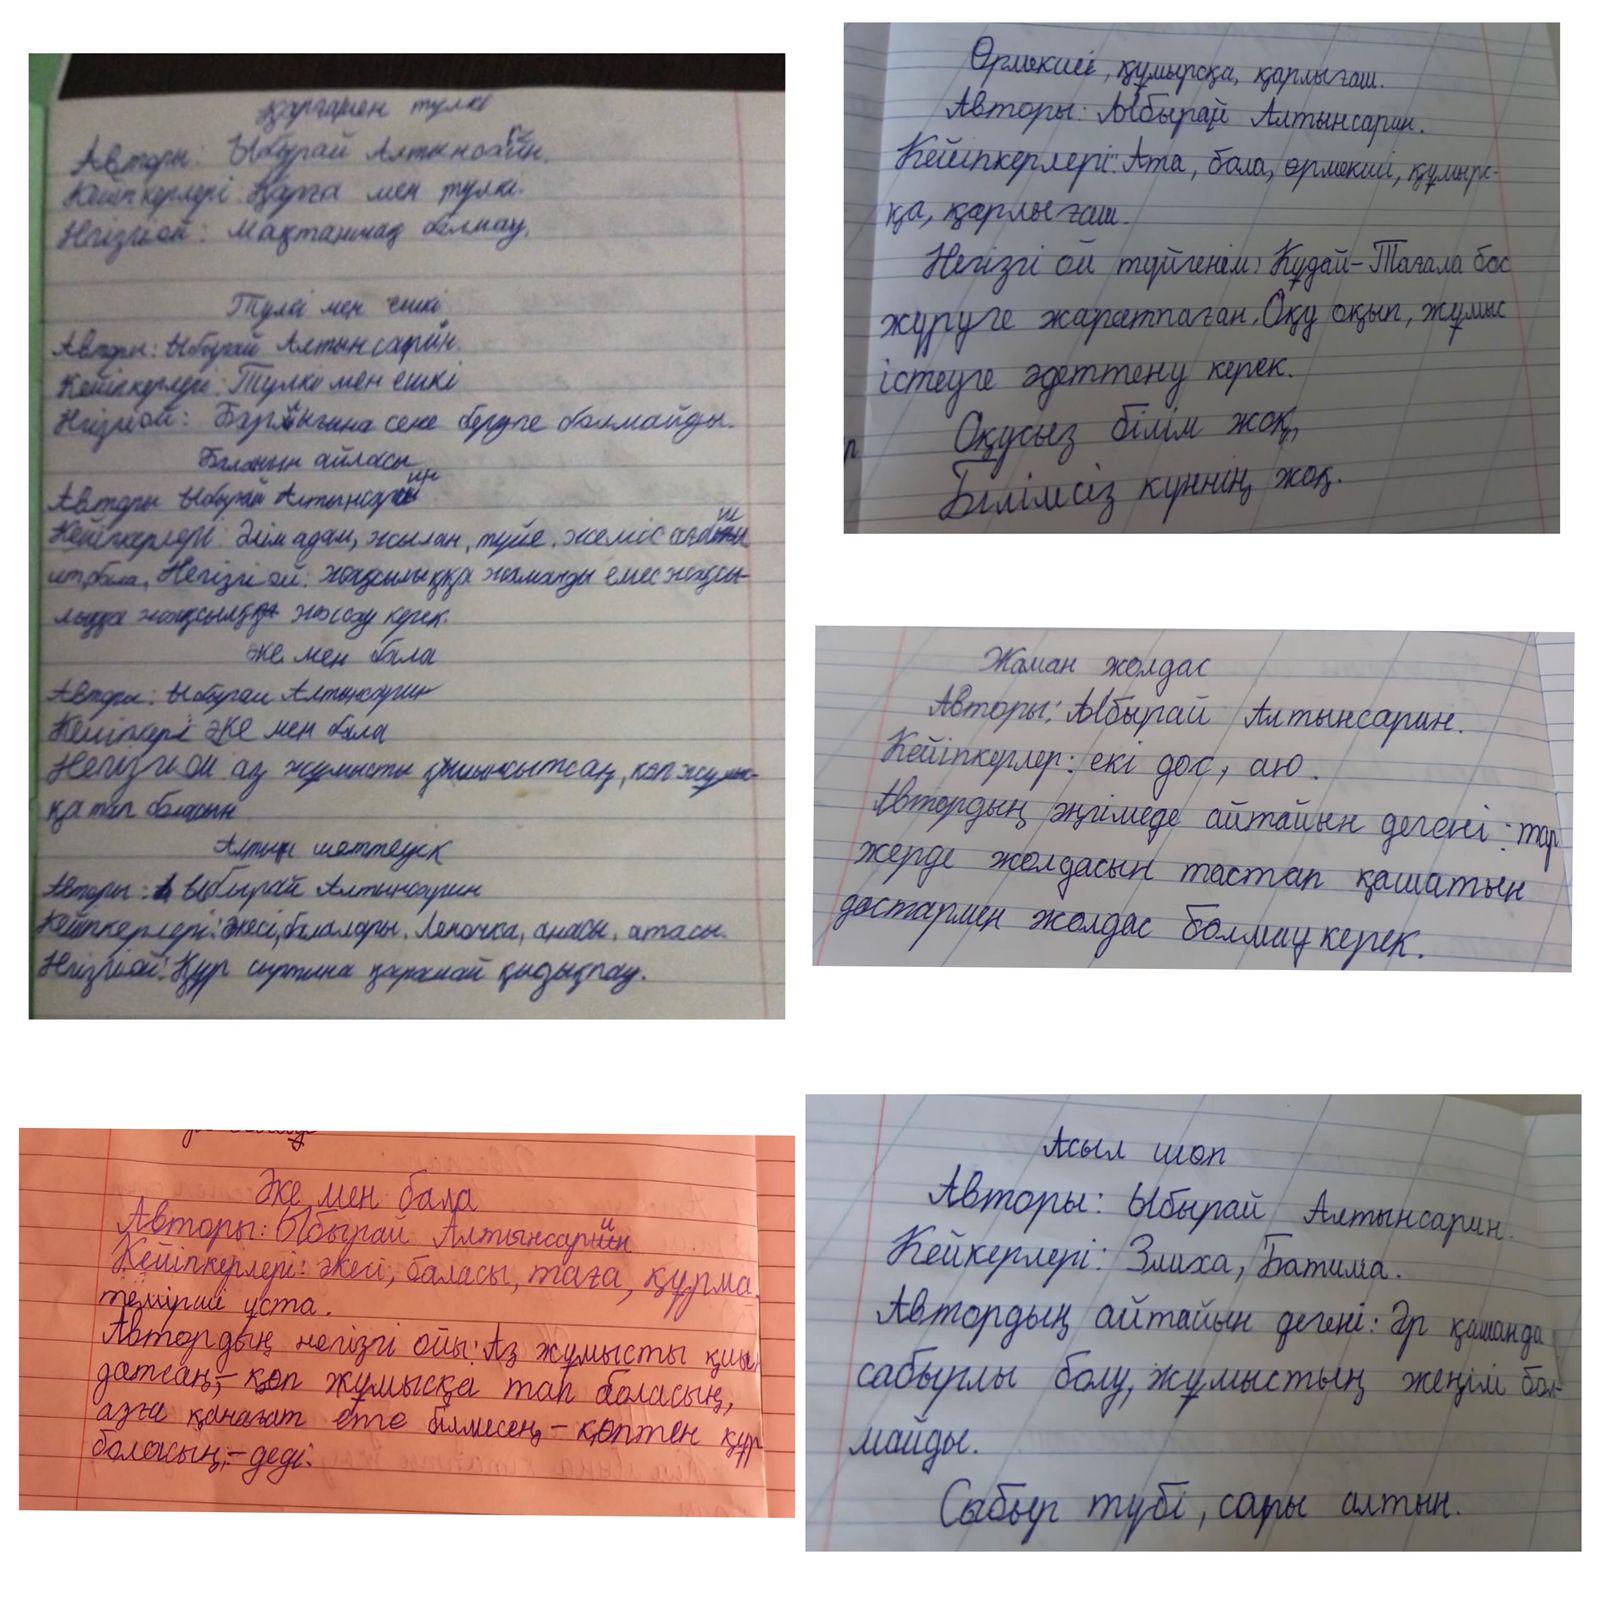 Қарға мен түлкі
Авторы: Ыбырай Алтынсарин.
Кейіпкерлері: Қарға мен түлкі.
Негізгі ой: Мақтаншақ болмау.
Түлкі мен ешкі
Авторы: Ыбырай Алтынсарин.
Кейіпкерлері: Түлкі мен ешкі
Негізгі ой: сене беруге болмайды.
Баланың айласы
Авторы Ыбырай Алтынсарин
Кейіпкерлері: адам, жылан, түйе, жеміс ағашы
ит, бала, Негізгі ой: жақсылыққа жаманды емес жақсы-
лыққа жақсылық жасау керек.
Әке мен бала
Авторы: Ыбырай Алтынсарин
Кейіпкері Әке мен бала
Негізгі ой аз жұмысты қиынсытсаң, көп жұмыс-
қа тап боласың
Алтын шеттеуік
Авторы: Ыбырай Алтынсарин
Кейіпкерлері: Әкесі, балалары, Леночка, анасы, атасы.
Негізгі ой: Құр сыртына қарамай қызықпау.
Өрмекші, құмырсқа, қарлығаш.
Авторы: Ыбырай Алтынсарин.
Кейіпкерлері: Ата, бала, өрмекші, құмырс-
қа, қарлығаш.
Негізгі ой түйгенім: Құдай-Тағала бос
жүруге жаратпаған. Оқу оқып, жұмыс
істеуге әдеттену керек.
Оқусыз білім жоқ,
Білімсіз күннің жоқ.
Жаман жолдас
Авторы: Ыбырай Алтынсарин.
Кейіпкерлер: екі дос, аю.
Автордың әңгімеде айтайын дегені: тар
жерде жолдасын тастап қашатын
достармен жолдас болмау керек.
Әке мен бала
Авторы: Ыбырай Алтынсарин
Кейіпкерлері: Әкесі, баласы, таға, құрма,
темірші ұста.
Автордың негізгі ойы: Аз жұмысты қиын
датсаң,- көп жұмысқа тап боласың,
азға қанағат ете білмесең,- көптен құр
боласың,- деді.
Асыл шөп
Авторы: Ыбырай Алтынсарин.
Кейкерлері: Злиха, Батима.
Автордың айтайын дегені: Әр қашанда
сабырлы болу, жұмыстың жеңілі бол-
майды.
Сабыр түбі, сары алтын.